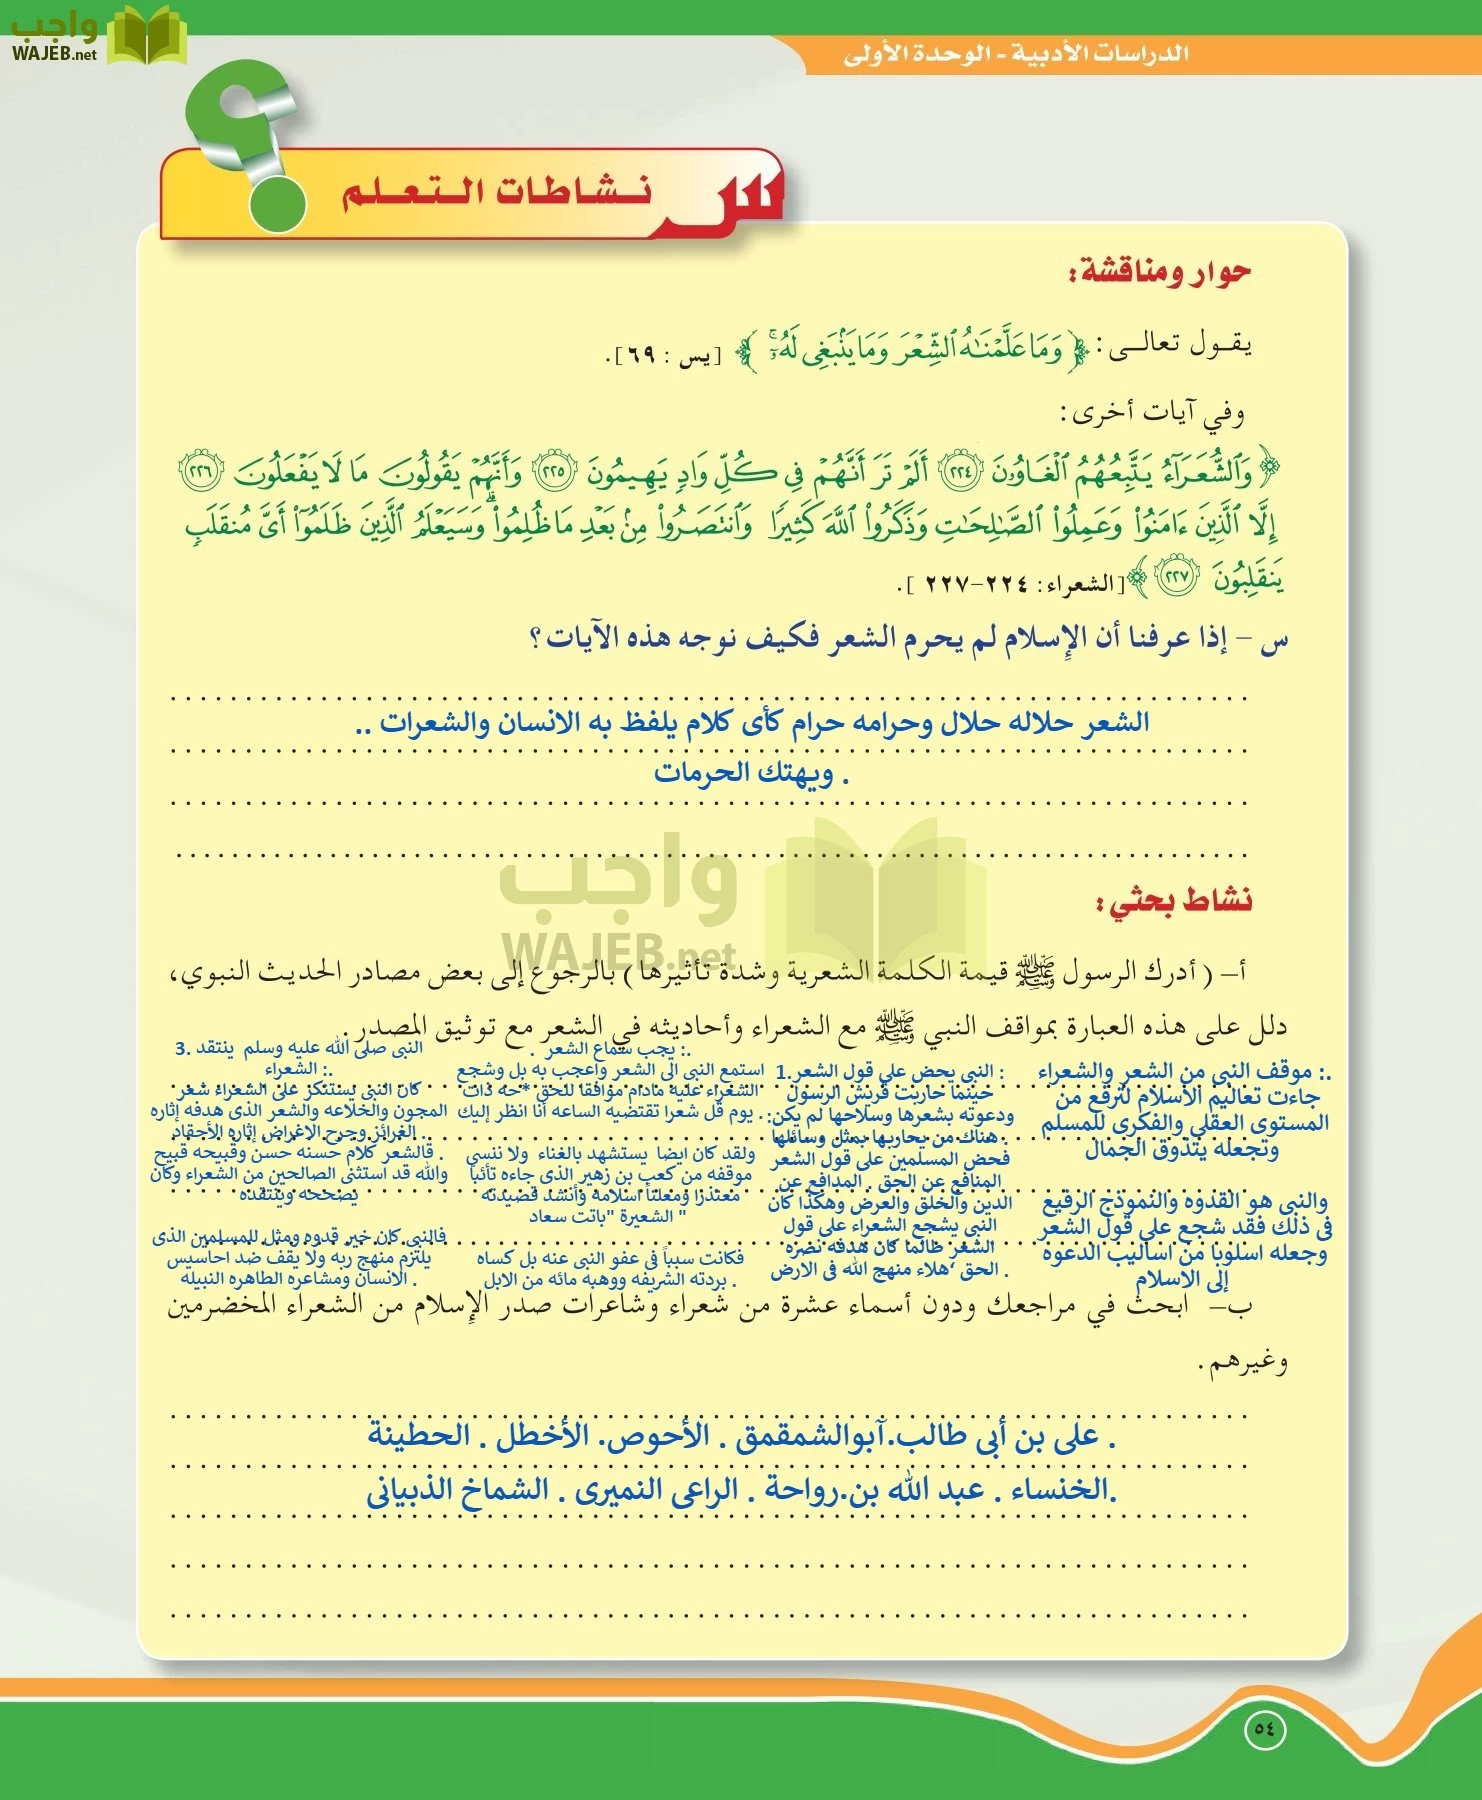 واجب
WAJEB.net
الدراسات الأدبية - الوحدة الأولى
س نشاطات التعلم
حوار ومناقشة:
يقول تعالى: ﴿وَمَا عَلَّمْنَٰهُ ٱلشِّعْرَ وَمَا يَنۢبَغِى لَهُۥٓ ۚ﴾ [يس : ٦٩].
وفي آيات أخرى:
﴿وَٱلشُّعَرَآءُ يَتَّبِعُهُمُ ٱلْغَاوُۥنَ ٢٢٤ أَلَمْ تَرَ أَنَّهُمْ فِى كُلِّ وَادٍ يَهِيمُونَ ٢٢٥ وَأَنَّهُمْ يَقُولُونَ مَا لَا يَفْعَلُونَ ٢٢٦
إِلَّا ٱلَّذِينَ ءَامَنُوا۟ وَعَمِلُوا۟ ٱلصَّٰلِحَٰتِ وَذَكَرُوا۟ ٱللَّهَ كَثِيرًا وَٱنتَصَرُوا۟ مِنۢ بَعْدِ مَا ظُلِمُوا۟ ۗ وَسَيَعْلَمُ ٱلَّذِينَ ظَلَمُوٓا۟ أَىَّ مُنقَلَبٍ
يَنقَلِبُونَ ٢٢٧﴾ [الشعراء: ٢٢٤-٢٢٧ ].
س – إذا عرفنا أن الإسلام لم يحرم الشعر فكيف نوجه هذه الآيات؟
الشعر حلاله حلال وحرامه حرام كأى كلام يلفظ به الانسان والشعرات ..
. ويهتك الحرمات
واجب
WAJEB.net
نشاط بحثي:
أ– ( أدرك الرسول ﷺ قيمة الكلمة الشعرية وشدة تأثيرها ) بالرجوع إلى بعض مصادر الحديث النبوي،
دلل على هذه العبارة بمواقف النبي ﷺ مع الشعراء وأحاديثه في الشعر مع توثيق المصدر.
.: موقف النبى من الشعر والشعراء
جاءت تعاليم الأسلام لترقع من
المستوى العقلي والفكرى للمسلم
وتجعله يتذوق الجمال
والنبى هو القدوه والنموذج الرقيع
فى ذلك فقد شجع على قول الشعر
وجعله اسلوبا من اساليب الدعوه
إلى الاسلام
: النبى يحض على قول الشعر.1
حينما حاربت قريش الرسول
ودعوته بشعرها وسلاحها لم يكن:
. هناك من يحاربها بمثل وسائلها
فحض المسلمين على قول الشعر
المنافع عن الحق . المدافع عن
الدين والخلق والعرض وهكذا كان
النبى يشجع الشعراء على قول
الشعر طالما كان هدفه نصره
. الحق ،هلاء منهج الله فى الارض
.: يجب سماع الشعر .
استمع النبى الى الشعر واعجب به بل وشجع
الشعراء عليه مادام موافقا للحق *حه ذات
. يوم قل شعرا تقتضيه الساعه أنا انظر إليك
ولقد كان ايضا يستشهد بالغناء ولا ننسي
موقفه من كعب بن زهير الذى جاءه تائبا
معتذرا ومعلناً اسلامه وأنشد قصيدته
" الشعيرة "باتت سعاد
فكانت سبباً فى عفو النبى عنه بل كساه
. بردته الشريفه ووهبه مائه من الابل
النبى صلى الله عليه وسلم ينتقد .3
.: الشعراء
كان النبى يستنكر على الشعراء شعر
المجون والخلاعه والشعر الذى هدفه إثاره
الغرائز وجرح الاغراض إثاره الأحقاد
. فالشعر كلام حسنه حسن وقبيحه قبيح
والله قد استثنى الصالحين من الشعراء وكان
يصححه وينتقده
فالنبى كان خير قدوه ومثل للمسلمين الذى
يلتزم منهج ربه ولا يقف ضد احاسيس
. الانسان ومشاعره الطاهره النبيله
ب– ابحث في مراجعك ودون أسماء عشرة من شعراء وشاعرات صدر الإسلام من الشعراء المخضرمين
وغيرهم.
. على بن أبى طالب.آبوالشمقمق . الأحوص. الأخطل . الحطينة
.الخنساء . عبد الله بن.رواحة . الراعى النميرى . الشماخ الذبيانى
٥٤